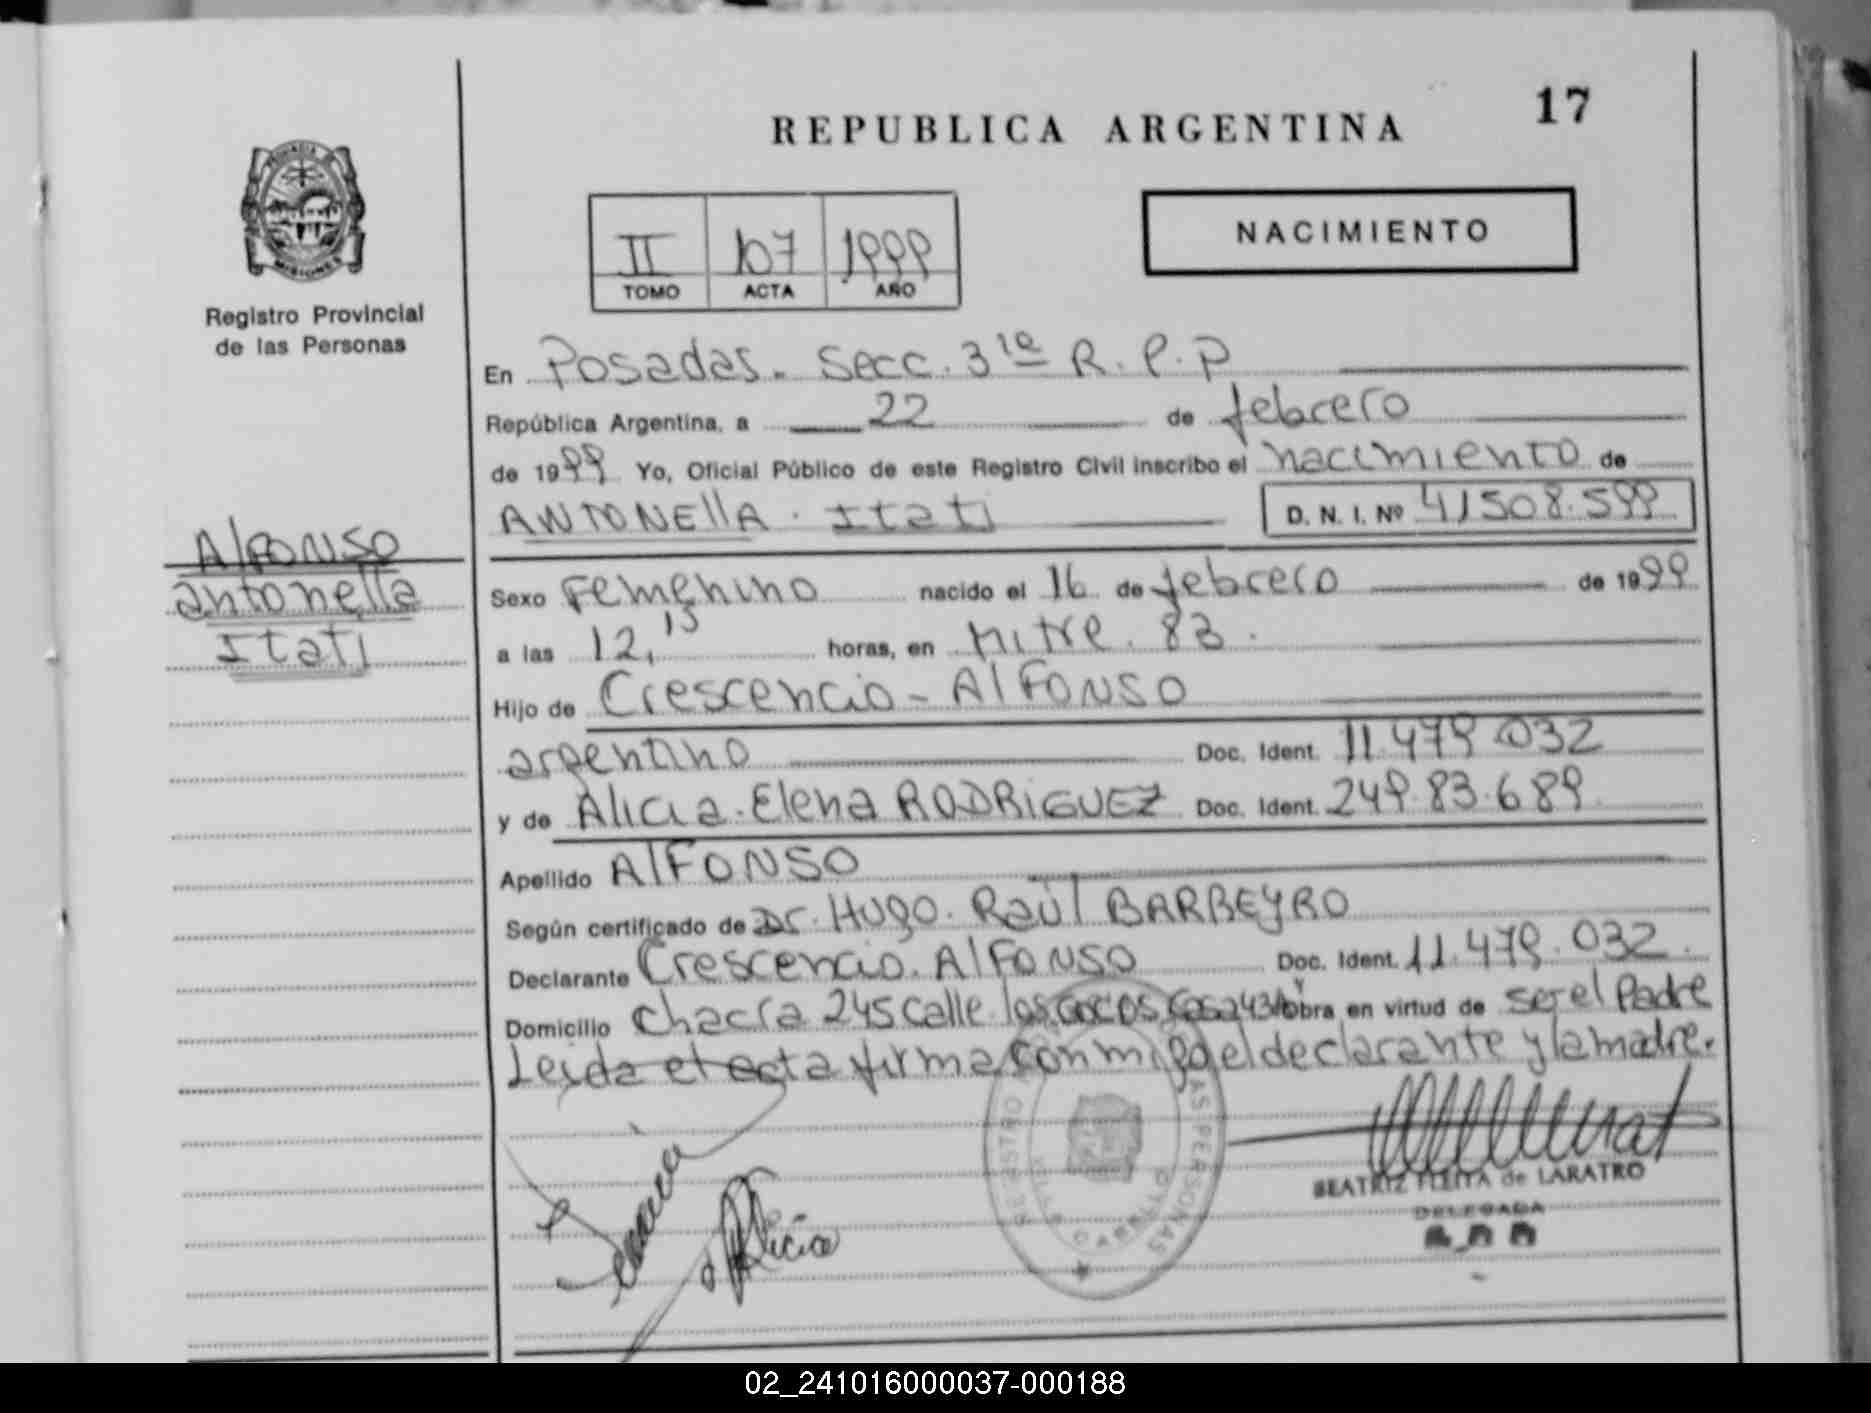 17
REPUBLICA ARGENTINA
PROVINCIA DE
MISIONES
NACIMIENTO
II 107 1999
TOMO ACTA AÑO
Registro Provincial
de las Personas
En Posadas. Secc. 3ra R.P.P
República Argentina, a 22 de febrero
de 1999 Yo, Oficial Público de este Registro Civil inscribo el nacimiento de
ANTONEllA. Itati D. N. I. Nº 41508.599
Alfonso
antonella
Itati
Sexo Femenino nacido el 16 de febrero de 1999
a las 12,15 horas, en Mitre. 83.
Hijo de Crescencio - AlFONSO
argentino Doc. Ident. 11.479.032
y de Alicia. Elena RODRIGUEZ Doc. Ident. 249.83.689
Apellido AlFONSO
Según certificado de Dr. Hugo. Raúl BARREYRO
Declarante Crescencio. AlFONSO Doc. Ident. 11.479.032.
Domicilio Chacra 245 calle los cocos casa 43 obra en virtud de ser el Padre
Leida el acta firma conmigo el declarante y la madre.
REGISTRO LAS PERSONAS
BEATRIZ FLEITA de LARATRO
DELEGADA
Alicia
02_241016000037-000188